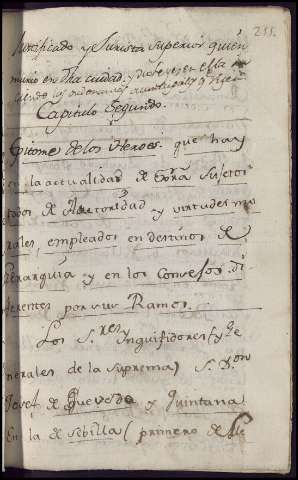 255.
Justificado y Jurista superior quien
murio en dha ciudad, y
Capitulo Segundo.
Epitome de los Heroes que hay
en la actualidad de
de Autoridad y virtudes mo
rales, empleados en destinos de
Gerarquia y en los Consejos di
ferentes por sus Ramos.
Los S.res Inquisidores Ge
nerales de la suprema S. Don
Josef de Quevedo y Quintana
En la de Sebilla (primero de